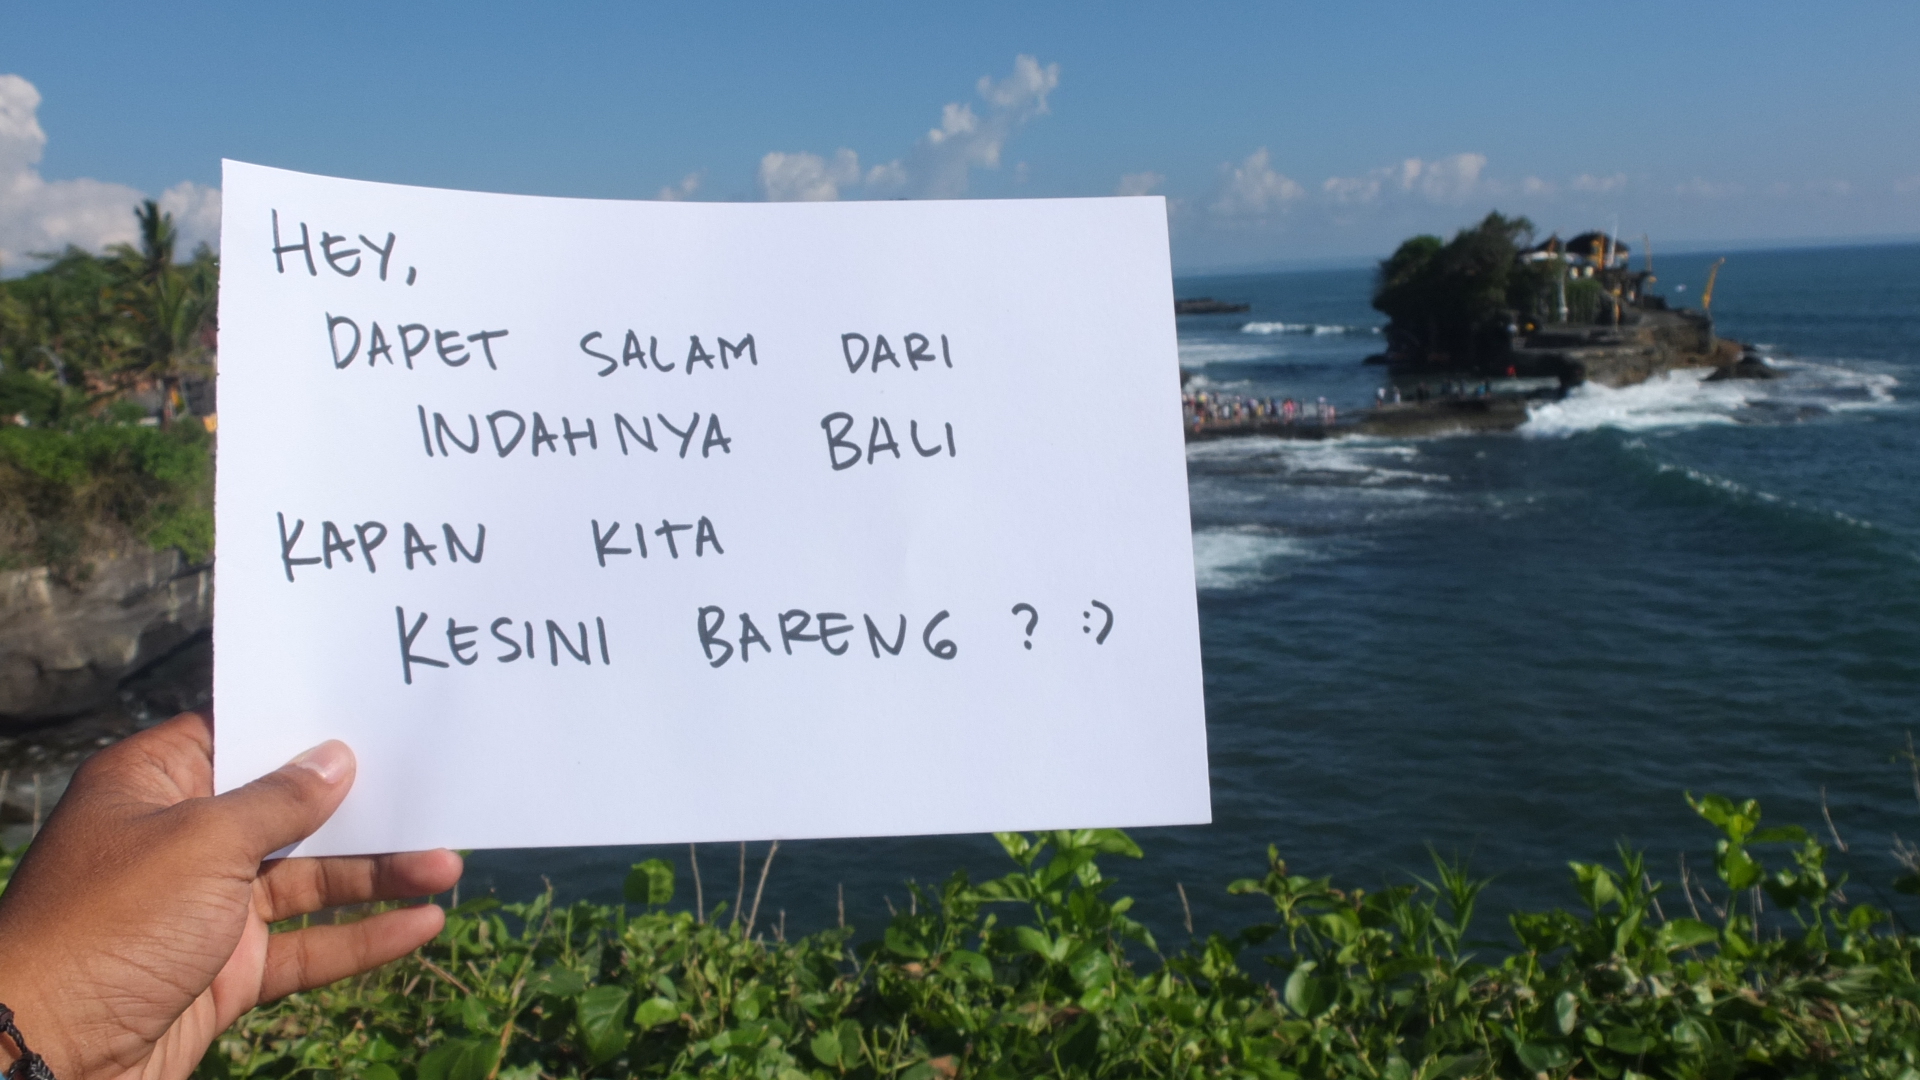 HEY,
DAPET SALAM DARI
INDAHNYA BALI
KAPAN KITA
KESINI BARENG ? :)